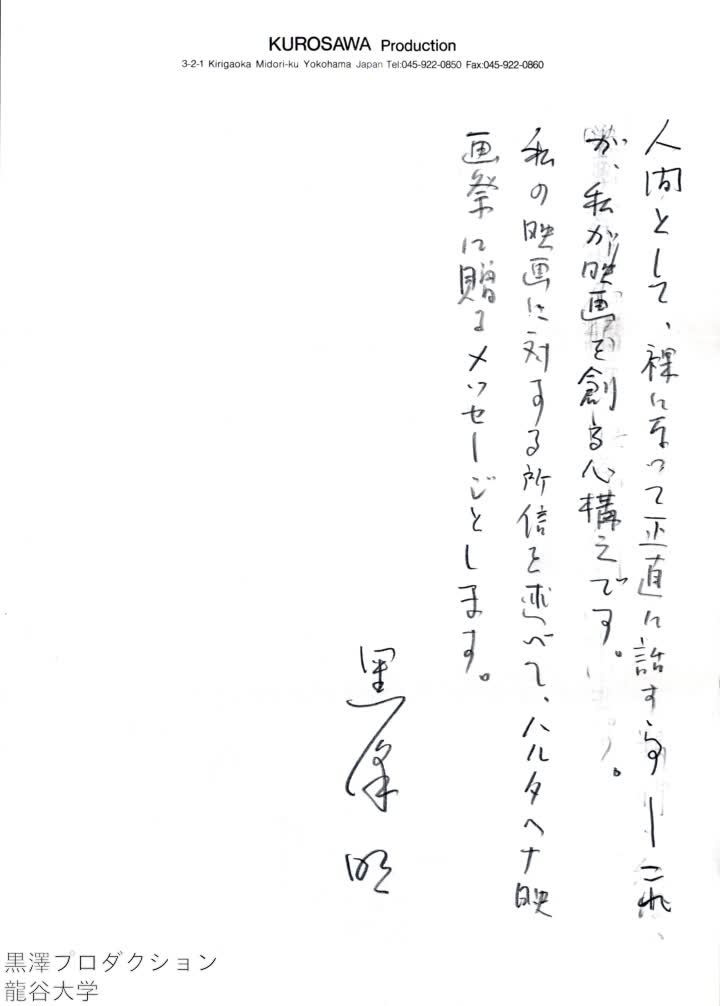 KUROSAWA Production
3-2-1 Kirigaoka Midori-ku Yokohama Japan Tel:045-922-0850 Fax:045-922-0860
人間として、裸になって正直に話す事ーこれ
が、私が映画を創る心構えです。
私の映画に対する所信を述べて、ハルタヘナ映
画祭に贈るメッセージとします。
黒澤明
黒澤プロダクション
龍谷大学